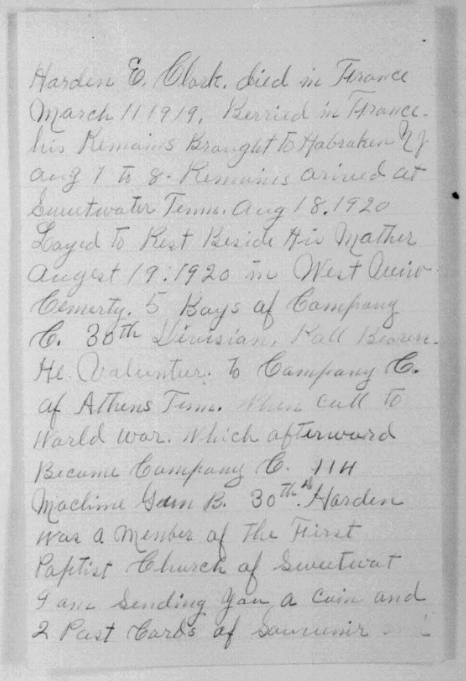 Harden E. Clark. died in France
March 11 1919. Berried in France.
his Remains Braught to Habroken NJ
aug 7 to 8. Remains arived at
Sweetwater Tenn. aug 18. 1920
Layed to Rest Beside His Mather
augest 19. 1920 in West
Cemerty. 5 Boys of Company
C. 30th Division. Pall Bearers.
He Valuntier. to Company C.
of Athens Tenn. when call to
World War. which afterward
Became Company C. 114
Machine Gun B. 30th D. Harden
was a Member of the First
Baptist Church of Sweetwat
I am sending you a coin and
2 Post Cards of Souvenir